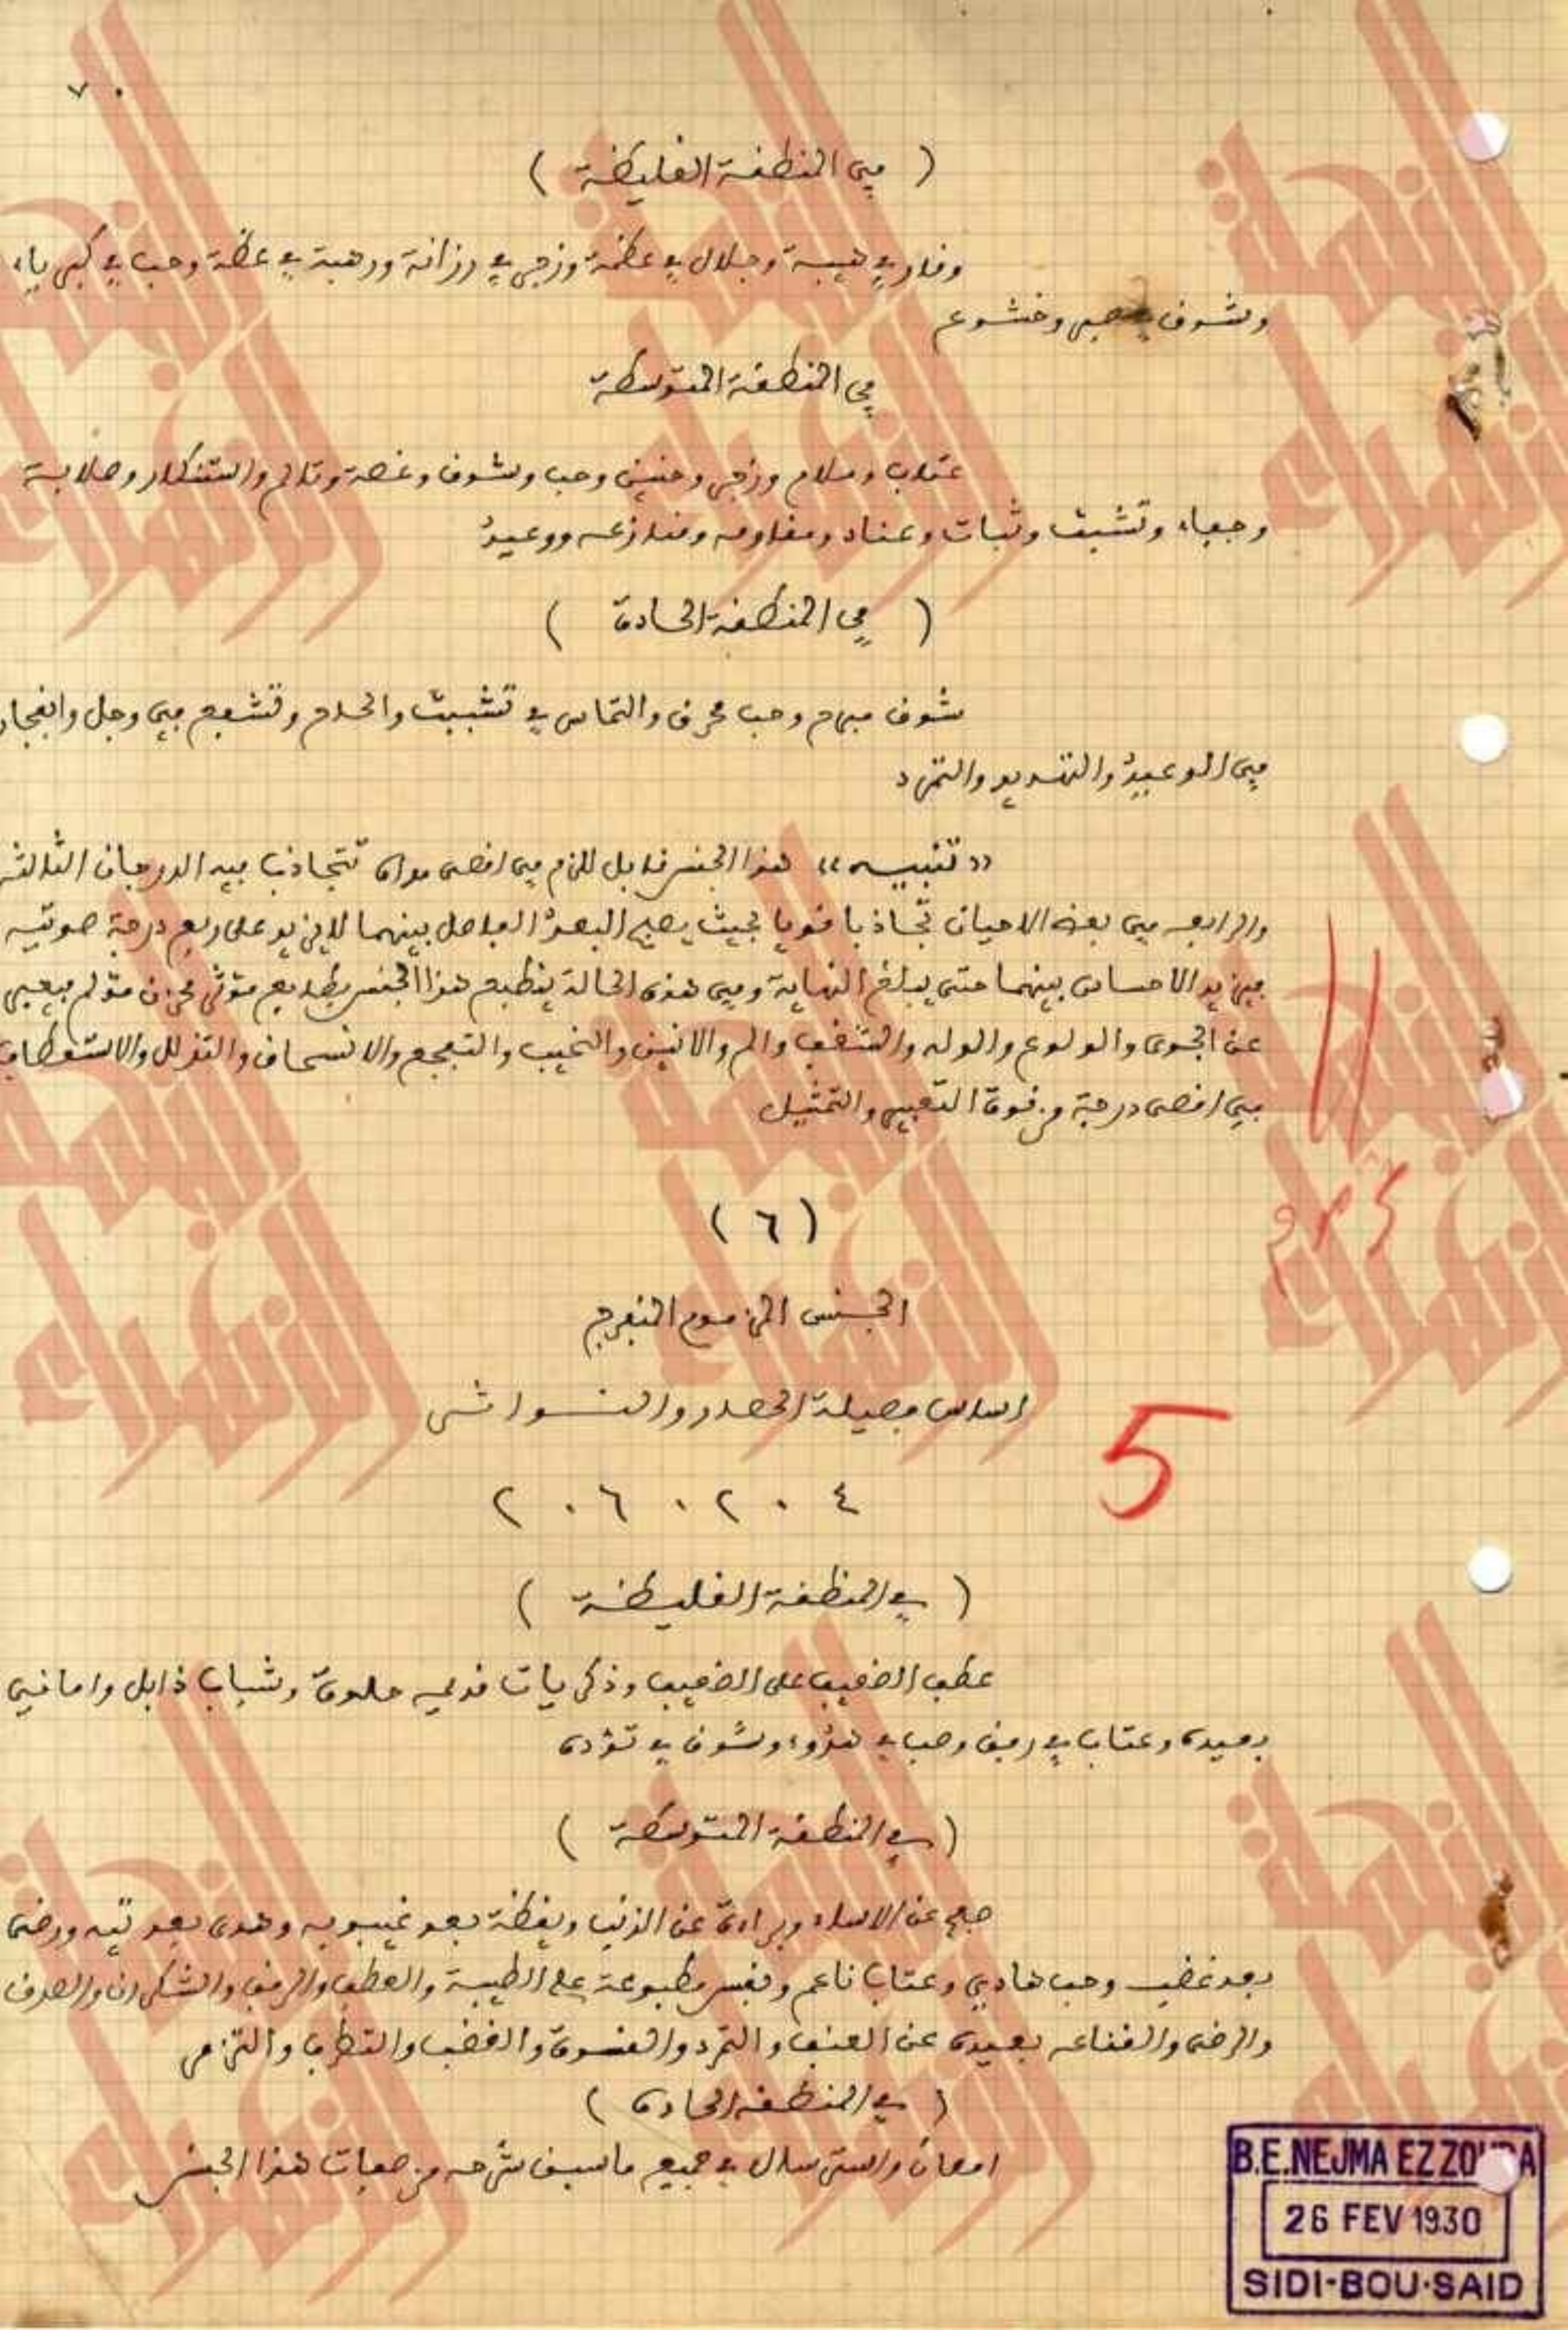 ٧٠
( في المنطقة الغليظة )
وقار في هيبة وجلال في عظمة وزجر في رزانة ورهبة في عظة وحب في كبرياء
وشوق في صبر وخشوع
في المنطقة المتوسطة
عتاب وملام وزجر وحنين وحب وشوق وغصة وتألم واستنكار وصلابة
وجفاء وتشبث وثبات وعناد ومقاومه ومنازعه ووعيد
( في المنطقة الحادة )
شوق مبرح وحب محرق والتماس في تشبث والحاح وتشفع في وجل وانفجار
في الوعيد والتهديد والتمرد
«تنبيه» هذا الجنس قابل للزم في اقصى مداه تتجاذب فيه الدرجات الثالثة
والرابعه في بعض الاحيان تجاذبا قويا بحيث يصير البعد الفاصل بينهما لا يزيد على ربع درجة صوتيه
فيزيد الاحساس بينهما حتى يبلغ النهاية وفي هذه الحالة ينطبع هذا الجنس بطابع مؤثر محزن مؤلم فيعبر
عن الجوى والولوع والوله والشغف والم والانين والنحيب والتفجع والانسحاق والتذلل والاستعطاف
في اقصى درجة من قوة التعبير والتمثيل
( ٦ )
الجنس المزموم المنفرج
اساس فصيلة الحصار والنوا شى
٤ ٠ ٢ ٠ ٦ ٠ ٢
5
( في المنطقة الغليظة )
عطف الضعيف على الضعيف وذكريات قديمه حلوة وشباب ذابل واماني
بعيده وعتاب في رفق وحب في هدوء وشوق في تؤده
( في المنطقة المتوسطة )
صفح عن الاساء وبراءة عن الذنب ويقظة بعد غيبوبه وهدى بعد تيه ورضى
بعد غضب وحب هادي وعتاب ناعم ونفس مطبوعة على الطيبة والعطف والرفق والشكران والصدق
والرضى والقناعه بعيدة عن العنف والتمرد والقسوة والغضب والتطرف والتزمر
( في المنطقة الحاده )
امعان واسترسال في جميع ما سبق شرحه من صفات هذا الجنس
النجمة الزهراء
B.E.NEJMA EZZOHRA
26 FEV 1930
SIDI-BOU-SAID